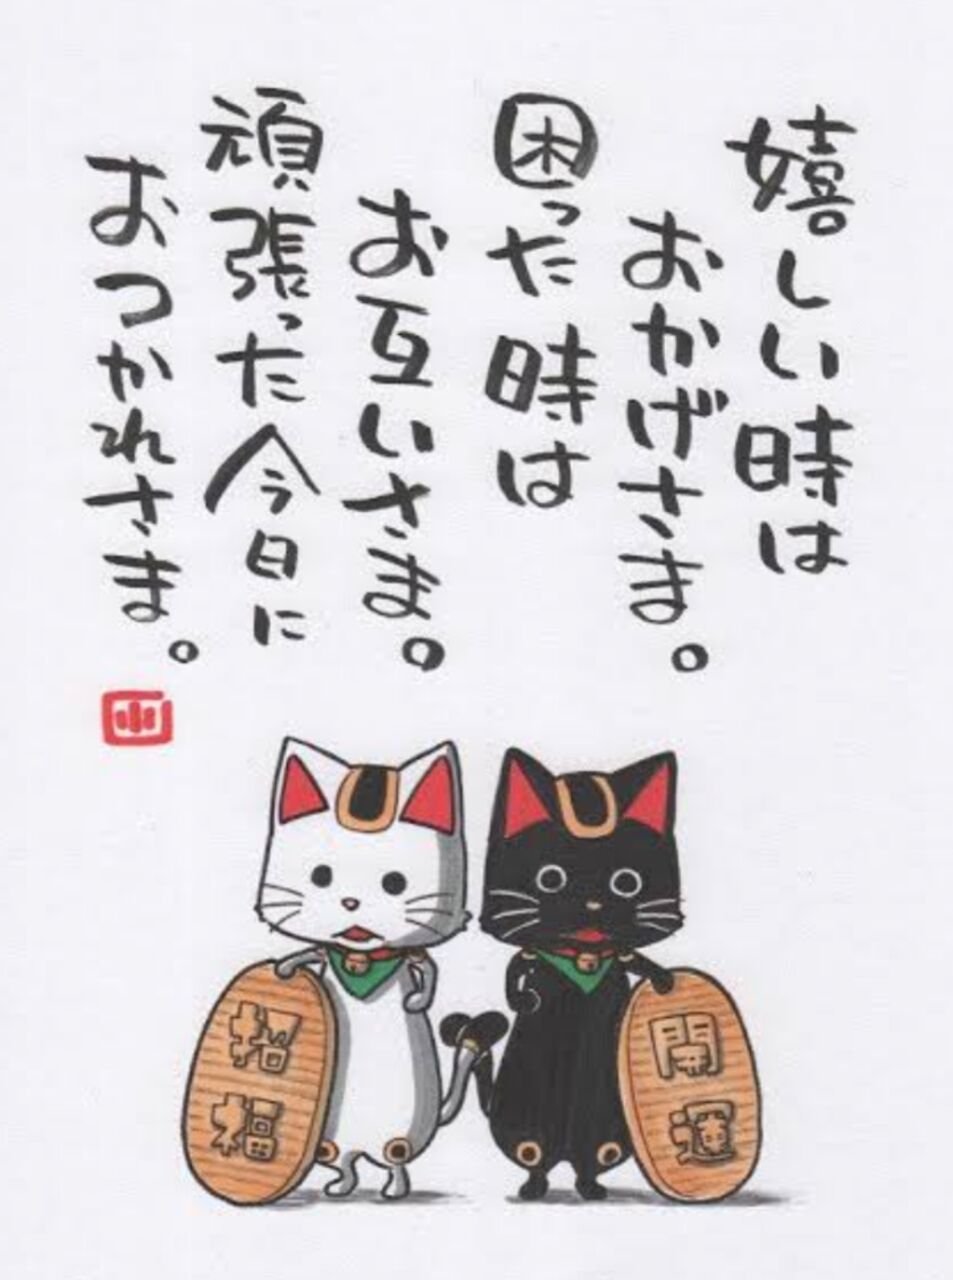 嬉しい時は
おかげさま。
困った時は
お互いさま。
頑張った今日に
おつかれさま。
招福
開運